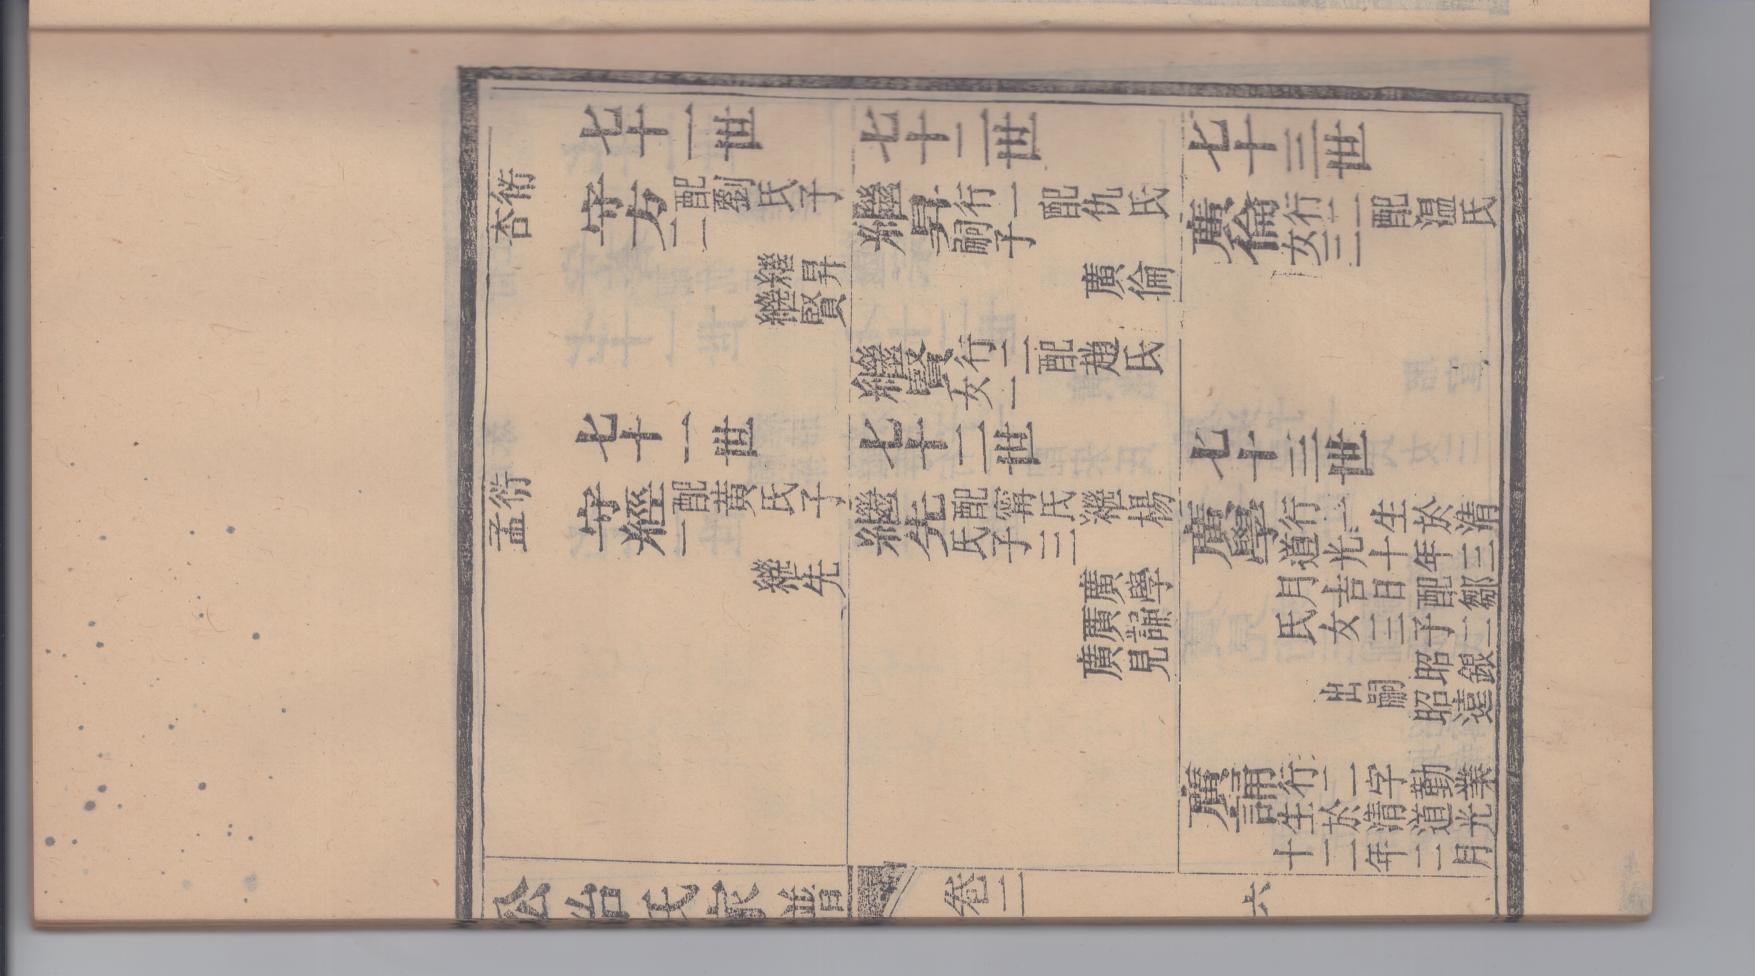 七十一世
衍杏
守安
配劉氏子
繼昇
繼賢
七十二世
繼昇
行一配仇氏
嗣子
廣倫
七十三世
廣倫
行一配温氏
女三
繼賢
行二配趙氏
女一
七十一世
衍孟
守經
配黄氏子
一
繼先
七十二世
繼先
配甯氏繼楊
氏子三
廣學
廣誦
廣見
七十三世
廣學
行一生於清
道光十年三
月吉日配鄒
氏女三子二
昭銀
昭遠
出嗣
廣誦
行二字勤業
生於清道光
十二年二月
公冶氏家譜
卷二
六